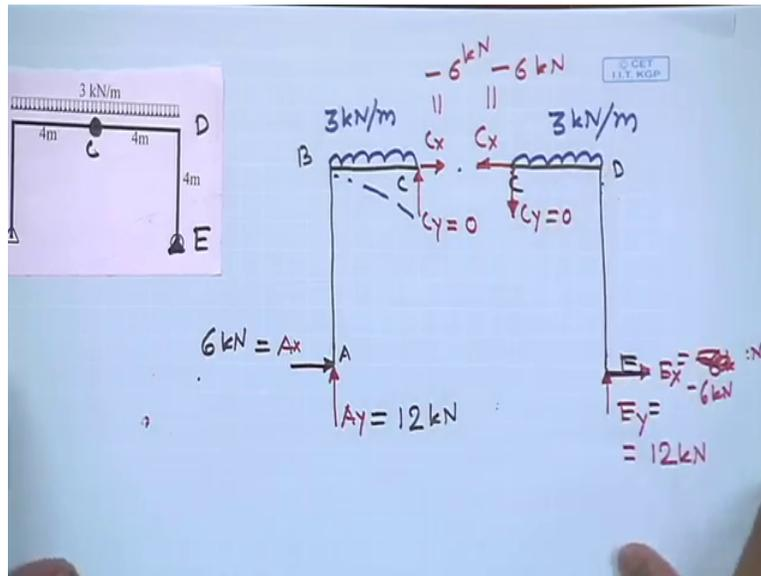 3 kN/m
4m
4m
D
C
4m
E
© CET
I.I.T. KGP
-6 kN
-6 kN
||
||
3kN/m
3kN/m
Cx
Cx
B
C
C
D
Cy=0
Cy=0
6kN = Ax
A
Ay = 12kN
E
Ex =
-6kN
Ey =
= 12kN